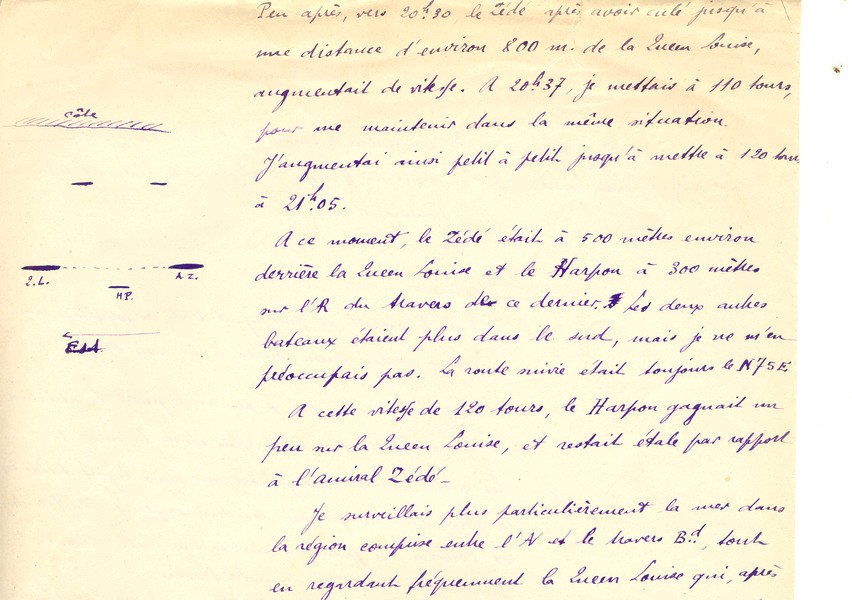 Peu après, vers 20h30, le Zédé après avoir culé jusqu'à
une distance d'environ 800 m. de la Queen Louise,
augmentait de vitesse. A 20h37, je mettais à 110 tours,
pour me maintenir dans la même situation.
J'augmentai ainsi petit à petit jusqu'à mettre à 120 tours
à 21h.05.
A ce moment, le Zédé était à 500 mètres environ
derrière la Queen Louise et le Harpon à 300 mètres
sur l'R du travers de ce dernier. Les deux autres
bateaux étaient plus dans le sud, mais je ne m'en
préoccupais pas. La route suivie était toujours le N75E.
A cette vitesse de 120 tours, le Harpon gagnait un
peu sur la Queen Louise, et restait étale par rapport
à l'amiral Zédé_
Je surveillais plus particulièrement la mer dans
la région comprise entre l'N et le travers Bd, tout
en regardant fréquemment la Queen Louise qui, après
Côte
Q.L.
A.Z.
HP.